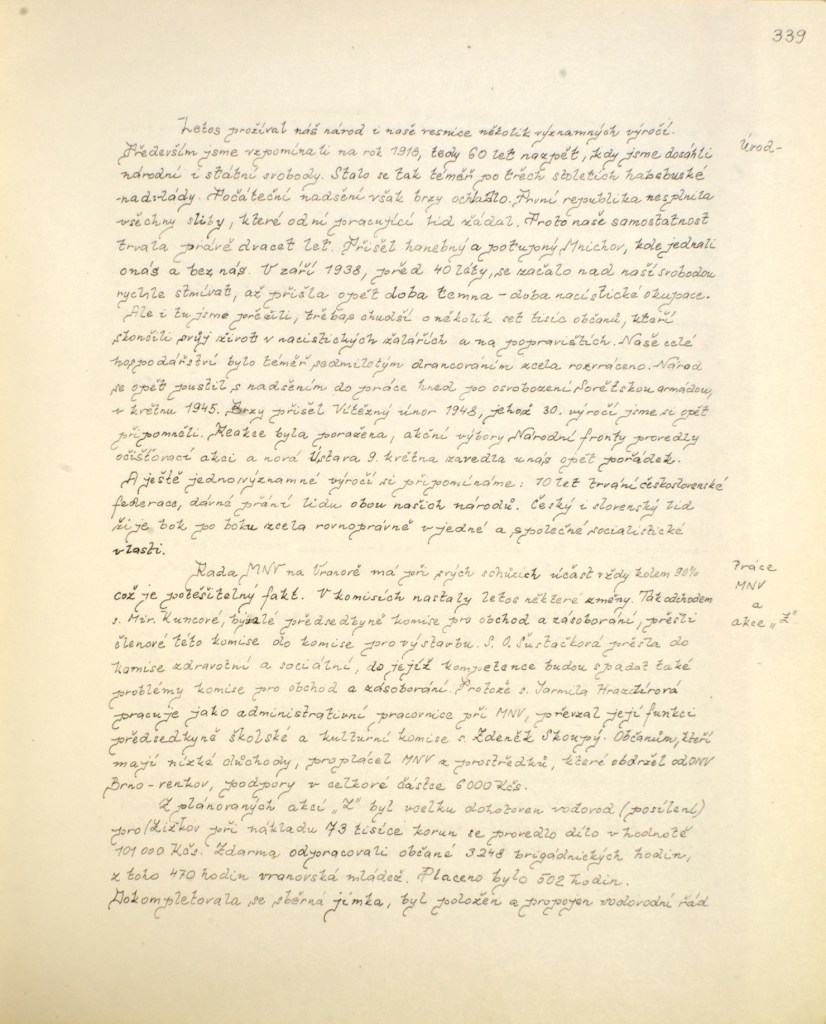 339
Letos prožíval náš národ i naše vesnice několik významných výročí.
Úvod-
Především jsme vzpomínali na rok 1918, tedy 60 let nazpět, kdy jsme dosáhli
národní i státní svobody. Stalo se tak téměř po třech stoletích habsburské
nadvlády. Počáteční nadšení však brzy ochladlo. První republika nesplnila
všechny sliby, které od ní pracující lid žádal. Proto naše samostatnost
trvala právě dvacet let. Přišel hanebný a potupný Mnichov, kde jednali
o nás a bez nás. V září 1938, před 40 léty, se začalo nad naší svobodou
rychle stmívat, až přišla opět doba temna - doba nacistické okupace.
Ale i tu jsme přežili, třebas chudší o několik set tisíc občanů, kteří
skončili svůj život v nacistických žalářích a na popravištích. Naše celé
hospodářství bylo téměř sedmiletým drancováním zcela rozvráceno. Národ
se opět pustil s nadšením do práce hned po osvobození Sovětskou armádou,
v květnu 1945. Brzy přišel Vítězný únor 1948, jehož 30. výročí jsme si opět
připomněli. Reakce byla poražena, akční výbory Národní fronty provedly
očišťovací akci a nová Ústava 9. května zavedla u nás opět pořádek.
A ještě jedno významné výročí si připomínáme: 10 let trvání československé
federace, dávné přání lidu obou našich národů. Český i slovenský lid
žije bok po boku zcela rovnoprávně v jedné a společné socialistické
vlasti.
Práce
MNV
a
akce „Z"
Rada MNV na Vranově má při svých schůzích účast vždy kolem 90%
což je potěšitelný fakt. V komisích nastaly letos některé změny. Tak odchodem
s. Mir. Kuncové, bývalé předsedkyně komise pro obchod a zásobování, přešli
členové této komise do komise pro výstavbu. S. O. Šustáčková přešla do
komise zdravotní a sociální, do jejíž kompetence budou spadat také
problémy komise pro obchod a zásobování. Protože s. Jarmila Hrazdírová
pracuje jako administrativní pracovnice při MNV, převzal její funkci
předsedkyně školské a kulturní komise s. Zdeněk Skoupý. Občanům, kteří
mají nízké důchody, proplácel MNV z prostředků, které obdržel od ONV
Brno-venkov, podpory v celkové částce 6000 Kčs.
Z plánovaných akcí „Z" byl vcelku dohotoven vodovod (posílení)
pro Žižkov při nákladu 73 tisíce korun se provedlo dílo v hodnotě
101 000 Kčs. Zdarma odpracovali občané 3248 brigádnických hodin,
z toho 470 hodin vranovská mládež. Placeno bylo 502 hodin.
Dokompletovala se sběrná jímka, byl položen a propojen vodovodní řád